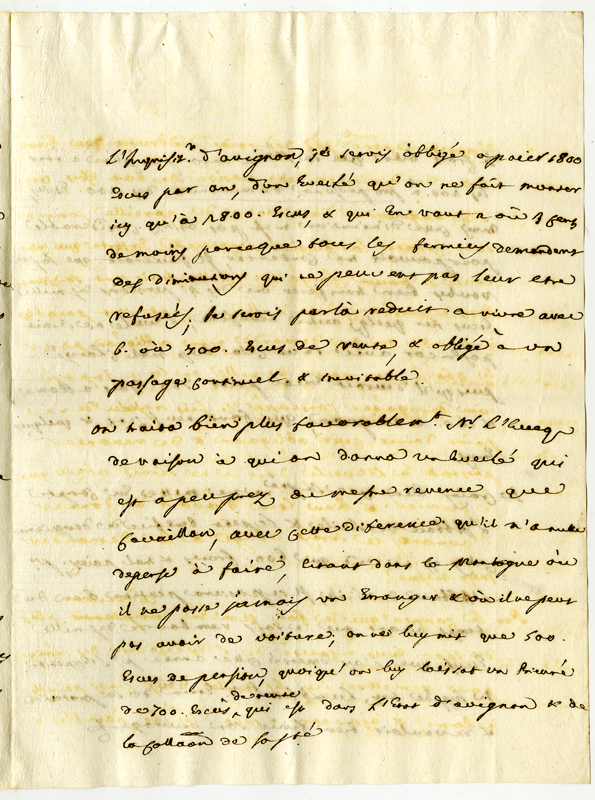 L'Inquisit.n d'avignon, je serois obbligé a paier 1800
Escus par an, d'un Eveché qu'on ne fait monter
icy qu'à 1800. Escus, & qui En vaut 2 où 3 cens
de moins parceque tous les fermiers demandent
des Diminutions qui ne peuvent pas leur etre
refusées, Je serois parlà reduit a vivre avec
6. où 700. Escus de rente, & obligé à un
passage continuel & inevitable.
on traita bien plus favorablem.t Mr. L'Eveq.
de vaison à qui on donna un Eveché qui
est à peu prez du mesme revenu que
Cavaillon, avec cette diference qu'il n'a nulle
depense à faire, Estant dans la Montagne où
il ne passe jamais un Etranger & où il ne peut
pas avoir de voiture; on ne luy mit que 500.
Escus de pension, quoique on luy laissat un Prieuré
de 700. Escus de rente, qui est dans L'Etat d'avignon & de
la Collaõn de sa sté